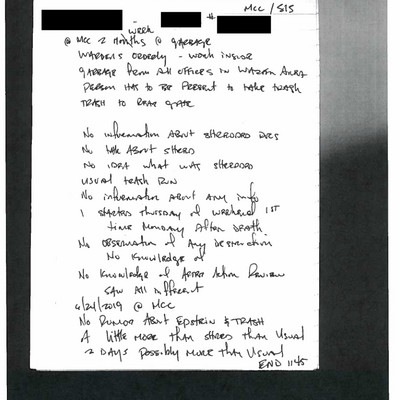 MCC / SIS
week #
@ MCC 2 months @ garbage
Wardens orderly - work inside
garbage from all offices in Warden Area
Person has to be present to take trash
trash to rear gate
No information about shredded docs
No talk about shreds
No idea what was shredded
usual trash run
No information about any info
I started Thursday of weekend 1st
time Monday after death
No observation of any destruction
No knowledge of
No knowledge of After Action Review
saw all different
6/24/2019 @ MCC
No rumor about Epstein & trash
A little more than shreds than usual
2 days possibly more than usual
END 1145